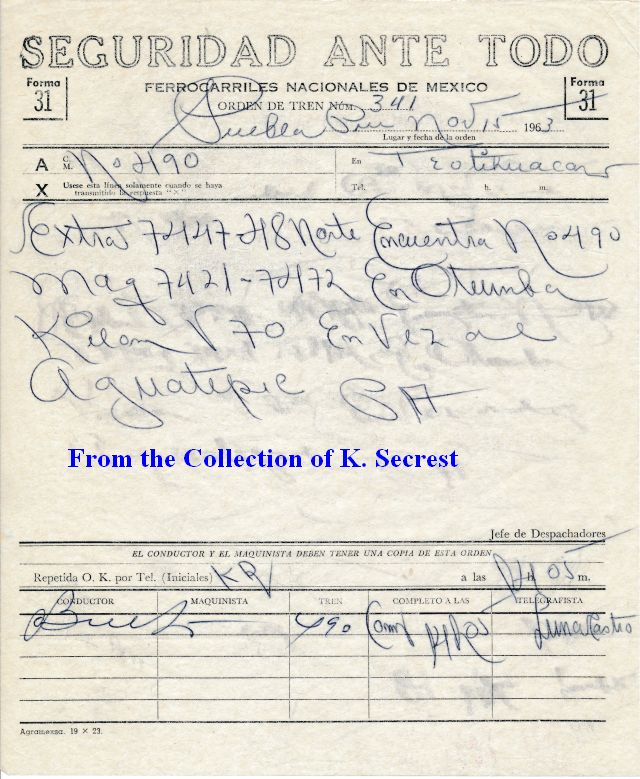 SEGURIDAD ANTE TODO
Forma 31
FERROCARRILES NACIONALES DE MEXICO
Forma 31
ORDEN DE TREN NÚM. 341
Puebla Pue Nov 15 1963
Lugar y fecha de la orden
A C. M. No 490 En Teotihuacan
X Usese esta línea solamente cuando se haya transmitido la respuesta "X" Tel. h. m.
Extra 7447-48 Norte Encuentra No 490
Maq 7421-7472 En Otumba
Kilom V70 En Vez de
Aguatepec
From the Collection of K. Secrest
Jefe de Despachadores
EL CONDUCTOR Y EL MAQUINISTA DEBEN TENER UNA COPIA DE ESTA ORDEN
Repetida O. K. por Tel. (Iniciales) a las h. 05 m.
CONDUCTOR MAQUINISTA TREN COMPLETO A LAS TELEGRAFISTA
490 Com Luna Castro
Agramexsa. 19 X 23.